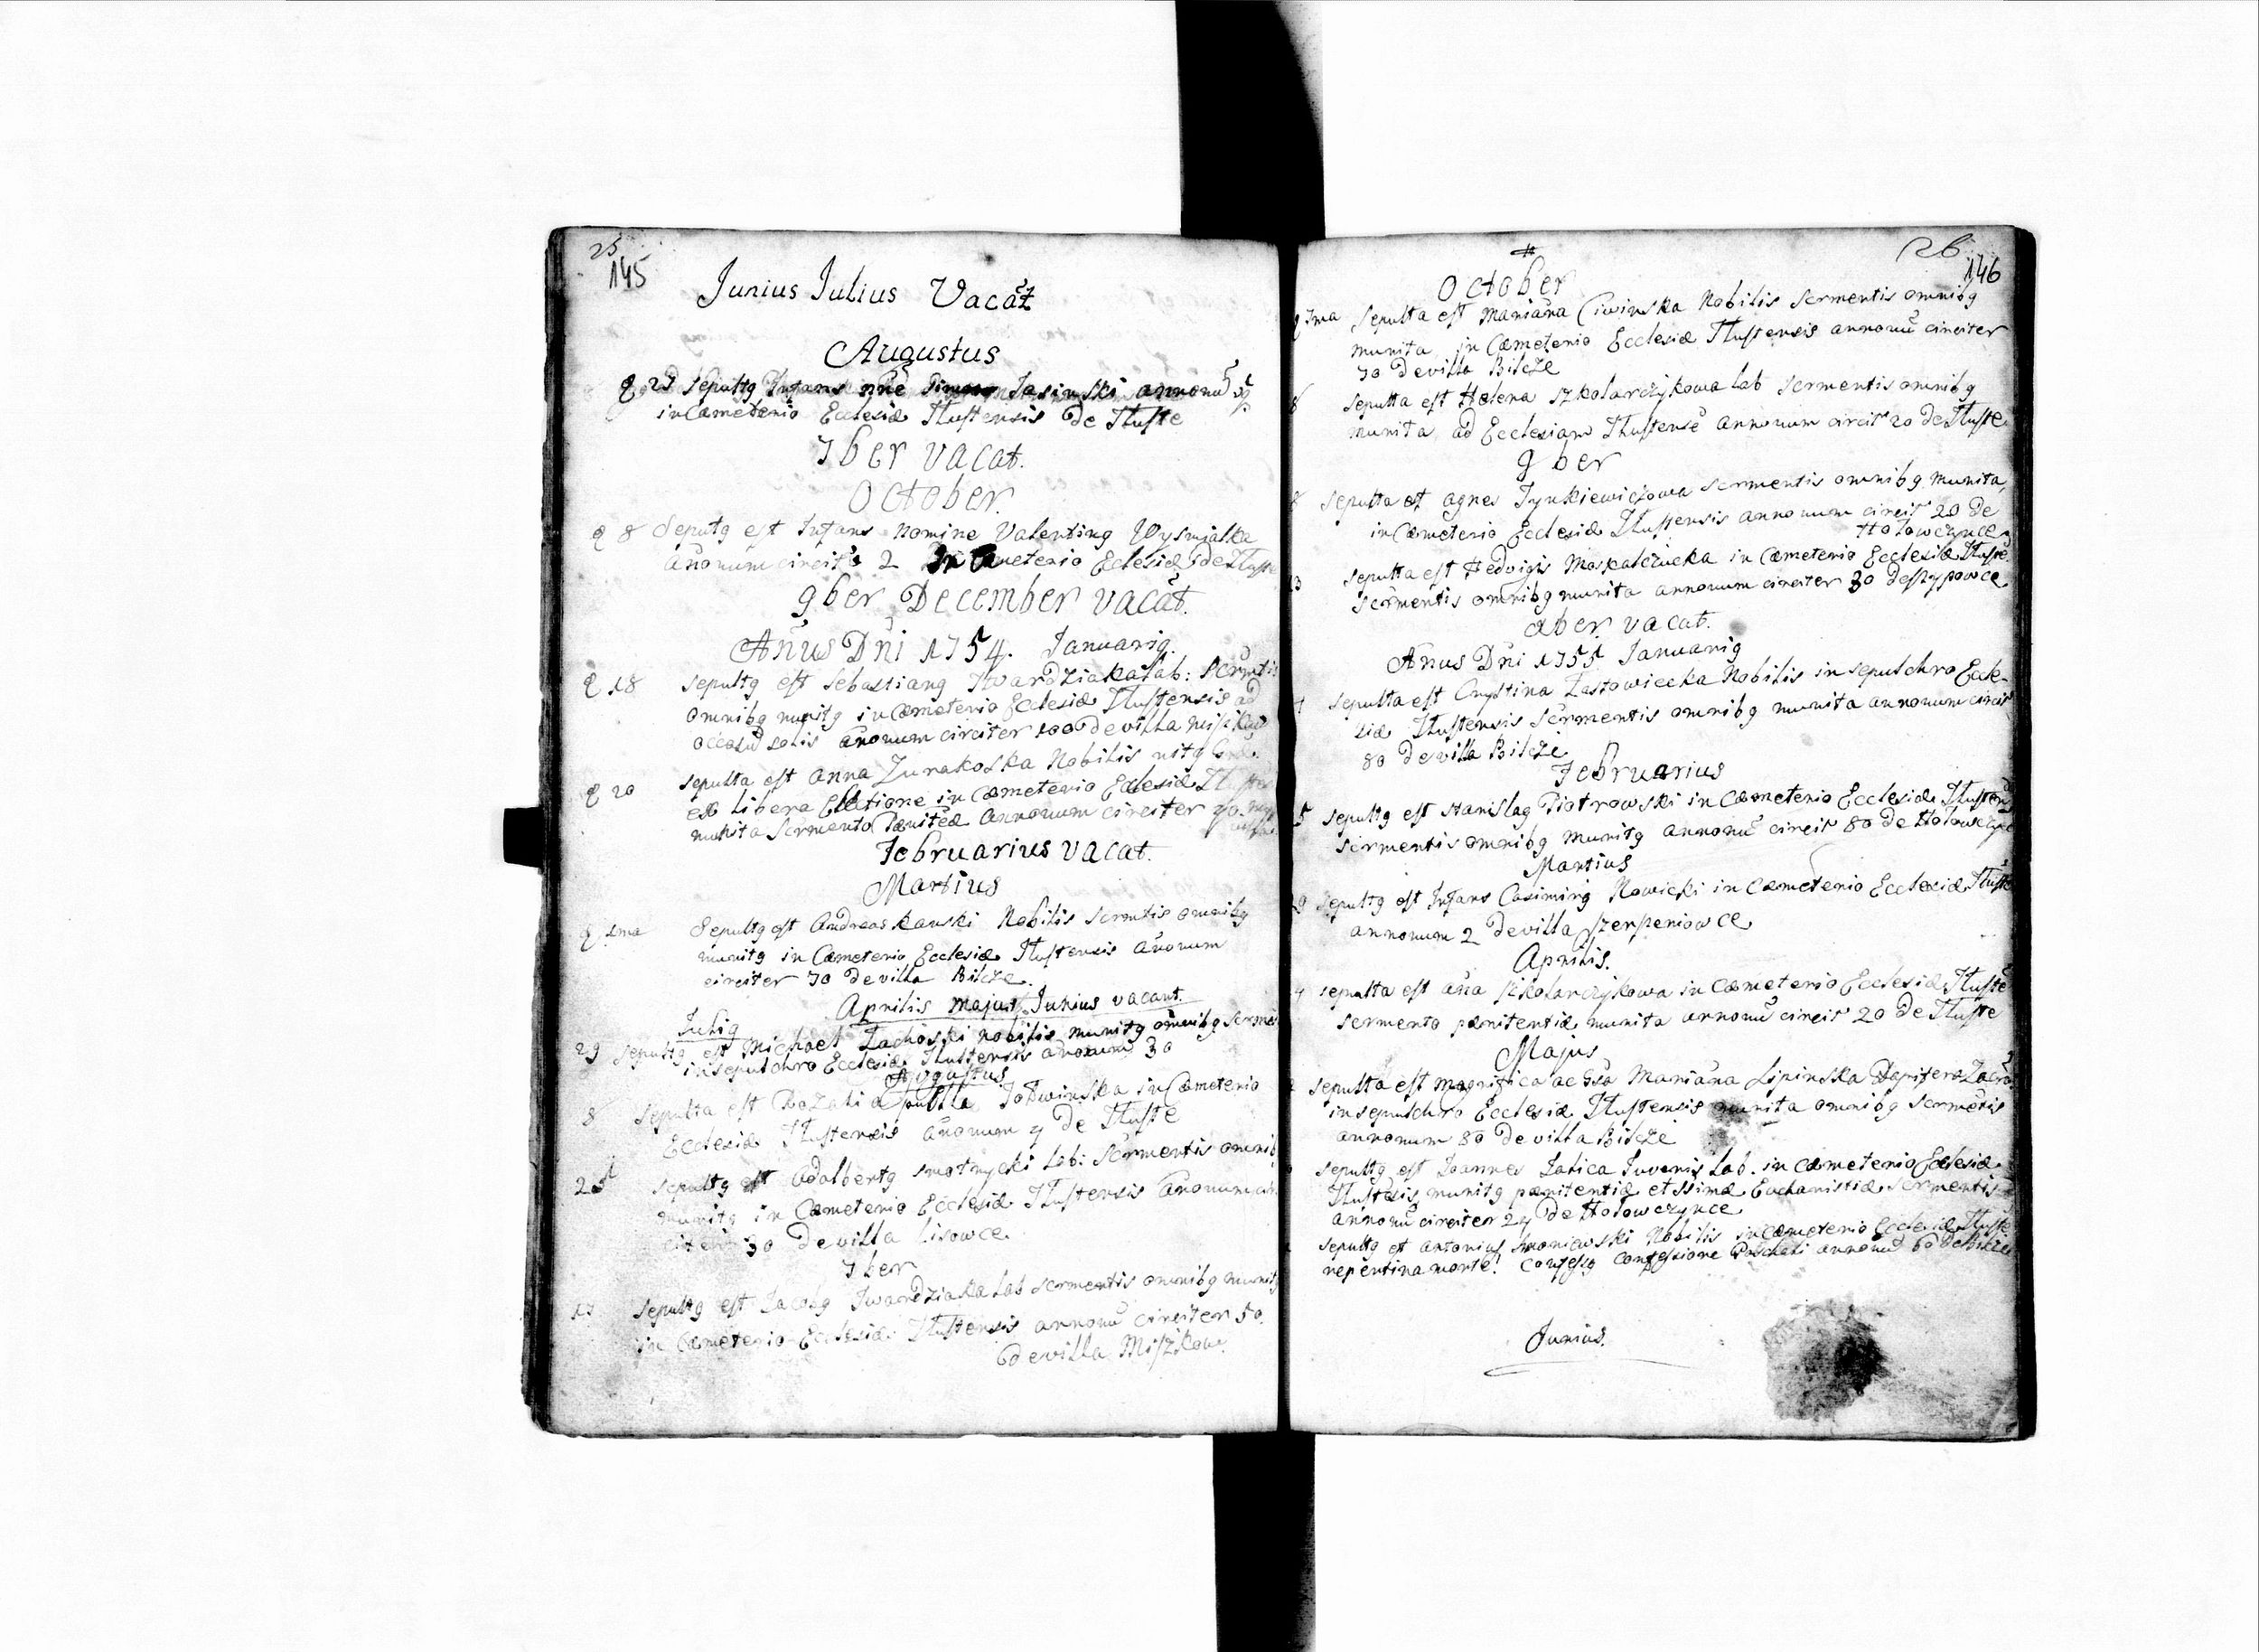 25
145
Junius Julius Vacāt
Augustus
27 Sepultg Infans nñe Jasinski annonū
in Cæmeterio Ecclesiæ Tlustensis de Tluste
7ber vacat.
October.
8 Sepultg est Infans Nomine Valenting Wysmialka
añonum circitr 2 In Cæmeterio Eclesiæ de Tluste
9ber December vacāt.
Añus Dñi 1754. Januarig.
18 sepultg est Sebastiang Twardziaka Lab: Sermtis
omnibg munitg in Cæmeterio Ecclesiæ Tlustensis ad
occasū solis añonum circiter 100 de villa
20 sepulta est Anna Zurakoska Nobilis
ex Libera in Cæmeterio Ecclesiæ
munita Sermento Pænitēæ annonum circiter
Februarius vacat.
Martius
1ma Sepultg est Andreas kauski Nobilis Sermtis omnibg
munitg in Cæmeterio Ecclesiæ Tlustensis añonum
circiter 70 de villa Bilcze.
Aprilis Majus Junius vacant.
Julig
29 sepultg est Michael Zachoski nobilis munitg omnibg Serme
in sepulchro Ecclesiæ Tlustensis añonum 30
Augustus
8 Sepulta est Rozalia puella Jodwinska in Cæmeterio
Ecclesiæ Tlustensis añonum 4 de Tluste
25 sepultg est Adalbertg smotrycki Lab: Sermentis omnib
munitg in Cæmeterio Ecclesiæ Tlustensis añonum cir
citer 30 de villa Lisowce.
7ber
17 sepultg est Jacobg Twardziaka Lab Sermentis omnibg munitg
in Cæmeterio Ecclesiæ Tlustensis annonū circiter 50.
de villa Miszkow.
26
146
October
7ma Sepulta est Mariana Ciwinska Nobilis Sermentis omnibg
munita in Cæmeterio Ecclesiæ Tlustensis annonū circiter
70 de villa Bilcze
8 sepulta est Helena Szkolarczykowa Lab Sermentis omnibg
munita ad Ecclesiam Tlustensē annonum circitr 20 de Tluste
9ber
8 sepulta est Agnes Tynkiewiczowa Sermentis omnibg munita,
in Cæmeterio Ecclesiæ Tlustensis annonum circitr 20 de
Holowczynce
13 sepulta est Hedvigis Moskalczucka in Cæmeterio Ecclesiæ Tluste
Sermentis omnibg munita annonum circiter 30 de szypowce
xber vacat.
Añus Dñi 1755 Januarig
4 sepulta est Crystina Zastowiecka Nobilis in sepulchro Eccle-
siæ Tlustensis Sermentis omnibg munita annonum circitr
80 de villa Bilcze
Februarius
5 sepultg est Stanislag Piotrowski in Cæmeterio Ecclesiæ Tlusten
sermentis omnibg munitg annonū circitr 80 de Holowczync
Martius
sepultg est Infans Casimirg Nowicki in Cæmeterio Ecclesiæ Tluste
annonum 2 de villa szerszeniowce
Aprilis.
4 sepulta est Aña szkolarczykowa in Cæmeterio Ecclesiæ Tluste
Sermento pænitentiæ munita annonū circitr 20 de Tluste
Majus
sepulta est Magnifica ac Gsa Mariana Lipinska Dapifera
in sepulchro Ecclesiæ Tlustensis munita omnibg Sermētis
annonum 80 de villa Bilcze
sepultg est Joannes Latica Juvenis Lab. in Cæmeterio Ecclesiæ
Tlustēsis munitg pænitentiæ et ssimæ Eucharistiæ Sermentis
annonū circiter 24 de Holowczynce
sepultg est Antonius Nobilis in Cæmeterio Ecclesiæ Tluste
repentina morte! confessg confessione Paschali annonū 60 de Bilcze
Junius.